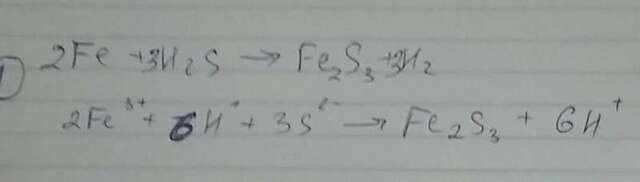 1) 2Fe + 3H₂S → Fe₂S₃ + 3H₂
2Fe³⁺ + 6H⁺ + 3S²⁻ → Fe₂S₃ + 6H⁺